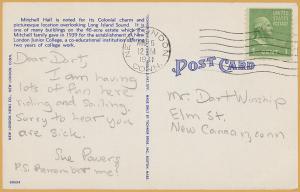 Mitchell Hall is noted for its Colonial charm and
picturesque location overlooking Long Island Sound. It
is one of many buildings on the 45-acre estate which the
Mitchell family gave in 1939 for the establishment of New
London Junior College, a co-educational institution offering
two years of college work.
POST CARD
Dear Dart,
I am having
lots of fun here
riding and sailing.
Sorry to hear you
are sick.
Sue Powers
P.S. Remember me!
Mr. Dart Winship
Elm St.
New Canaan, conn